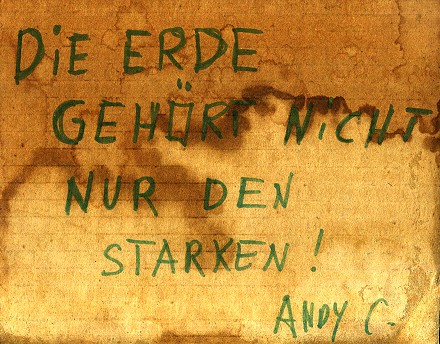 DiE ERDE
GEHÖRT NiCHT
NUR DEN
STARKEN!
ANDY C.